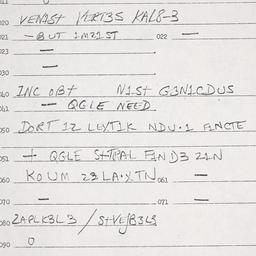 020 VEN1St KIRT3S KAL8-3
021 - BUT 1M21ST 022 —
023 —
030 —
040 INC OBt N1St G3N1CDUS
041 — QGLE NEED
050 DORT 12 LEYT1K NDU·1 FINCTE
051 + QGLE StTPAL FIND3 21N
060 KOUM 23 LA·XTN 061 —
070 — 071 —
080 2APLK3L3 / StVEJB3LS
090 0